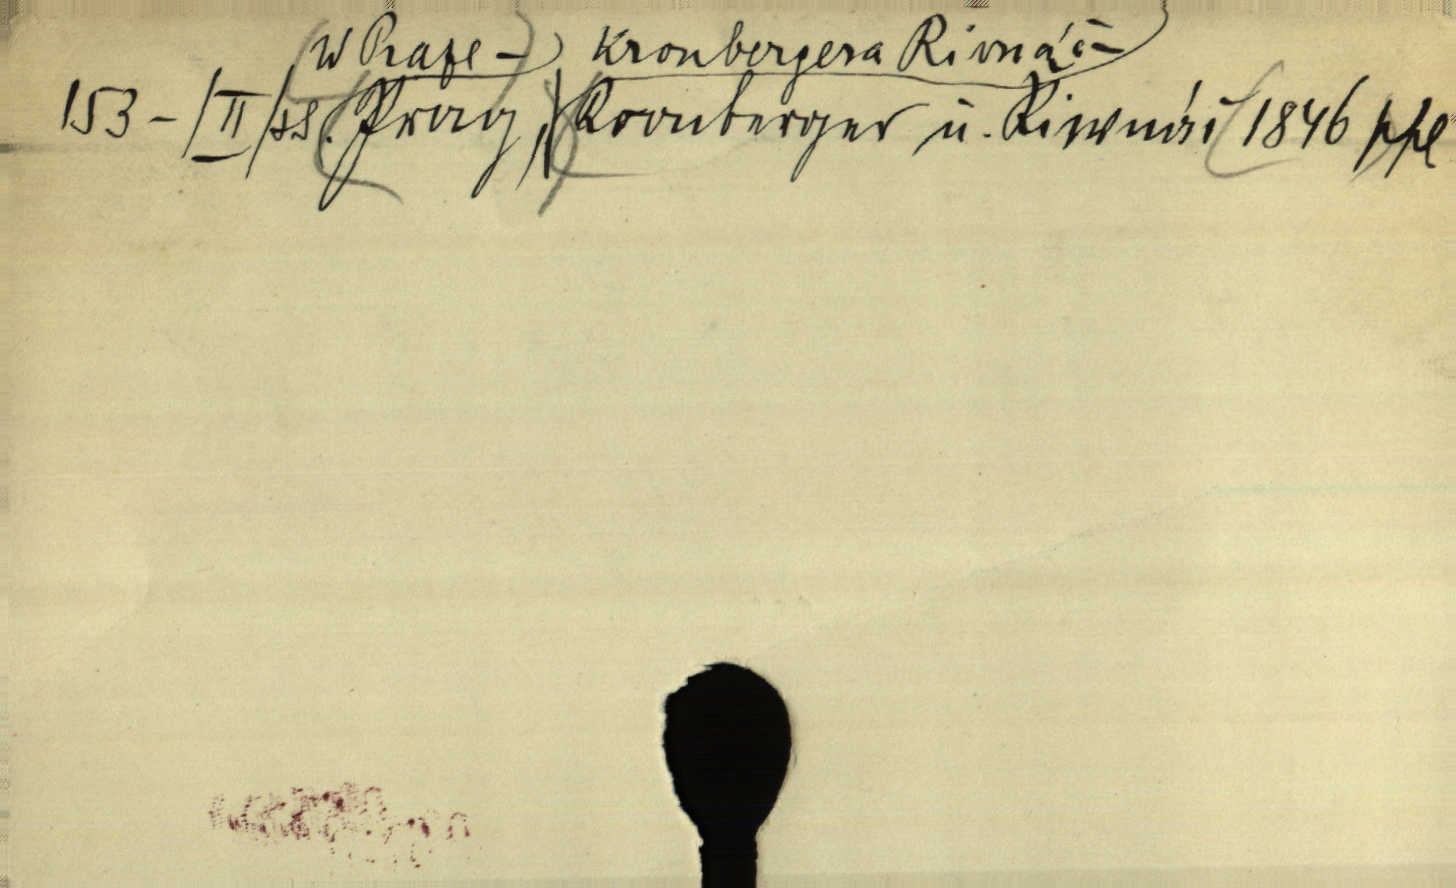 W Praze – Kronbergera Rivnáč –
153 – /II/ ss. Prag, Kronberger u. Riwnáč 1846 ppl